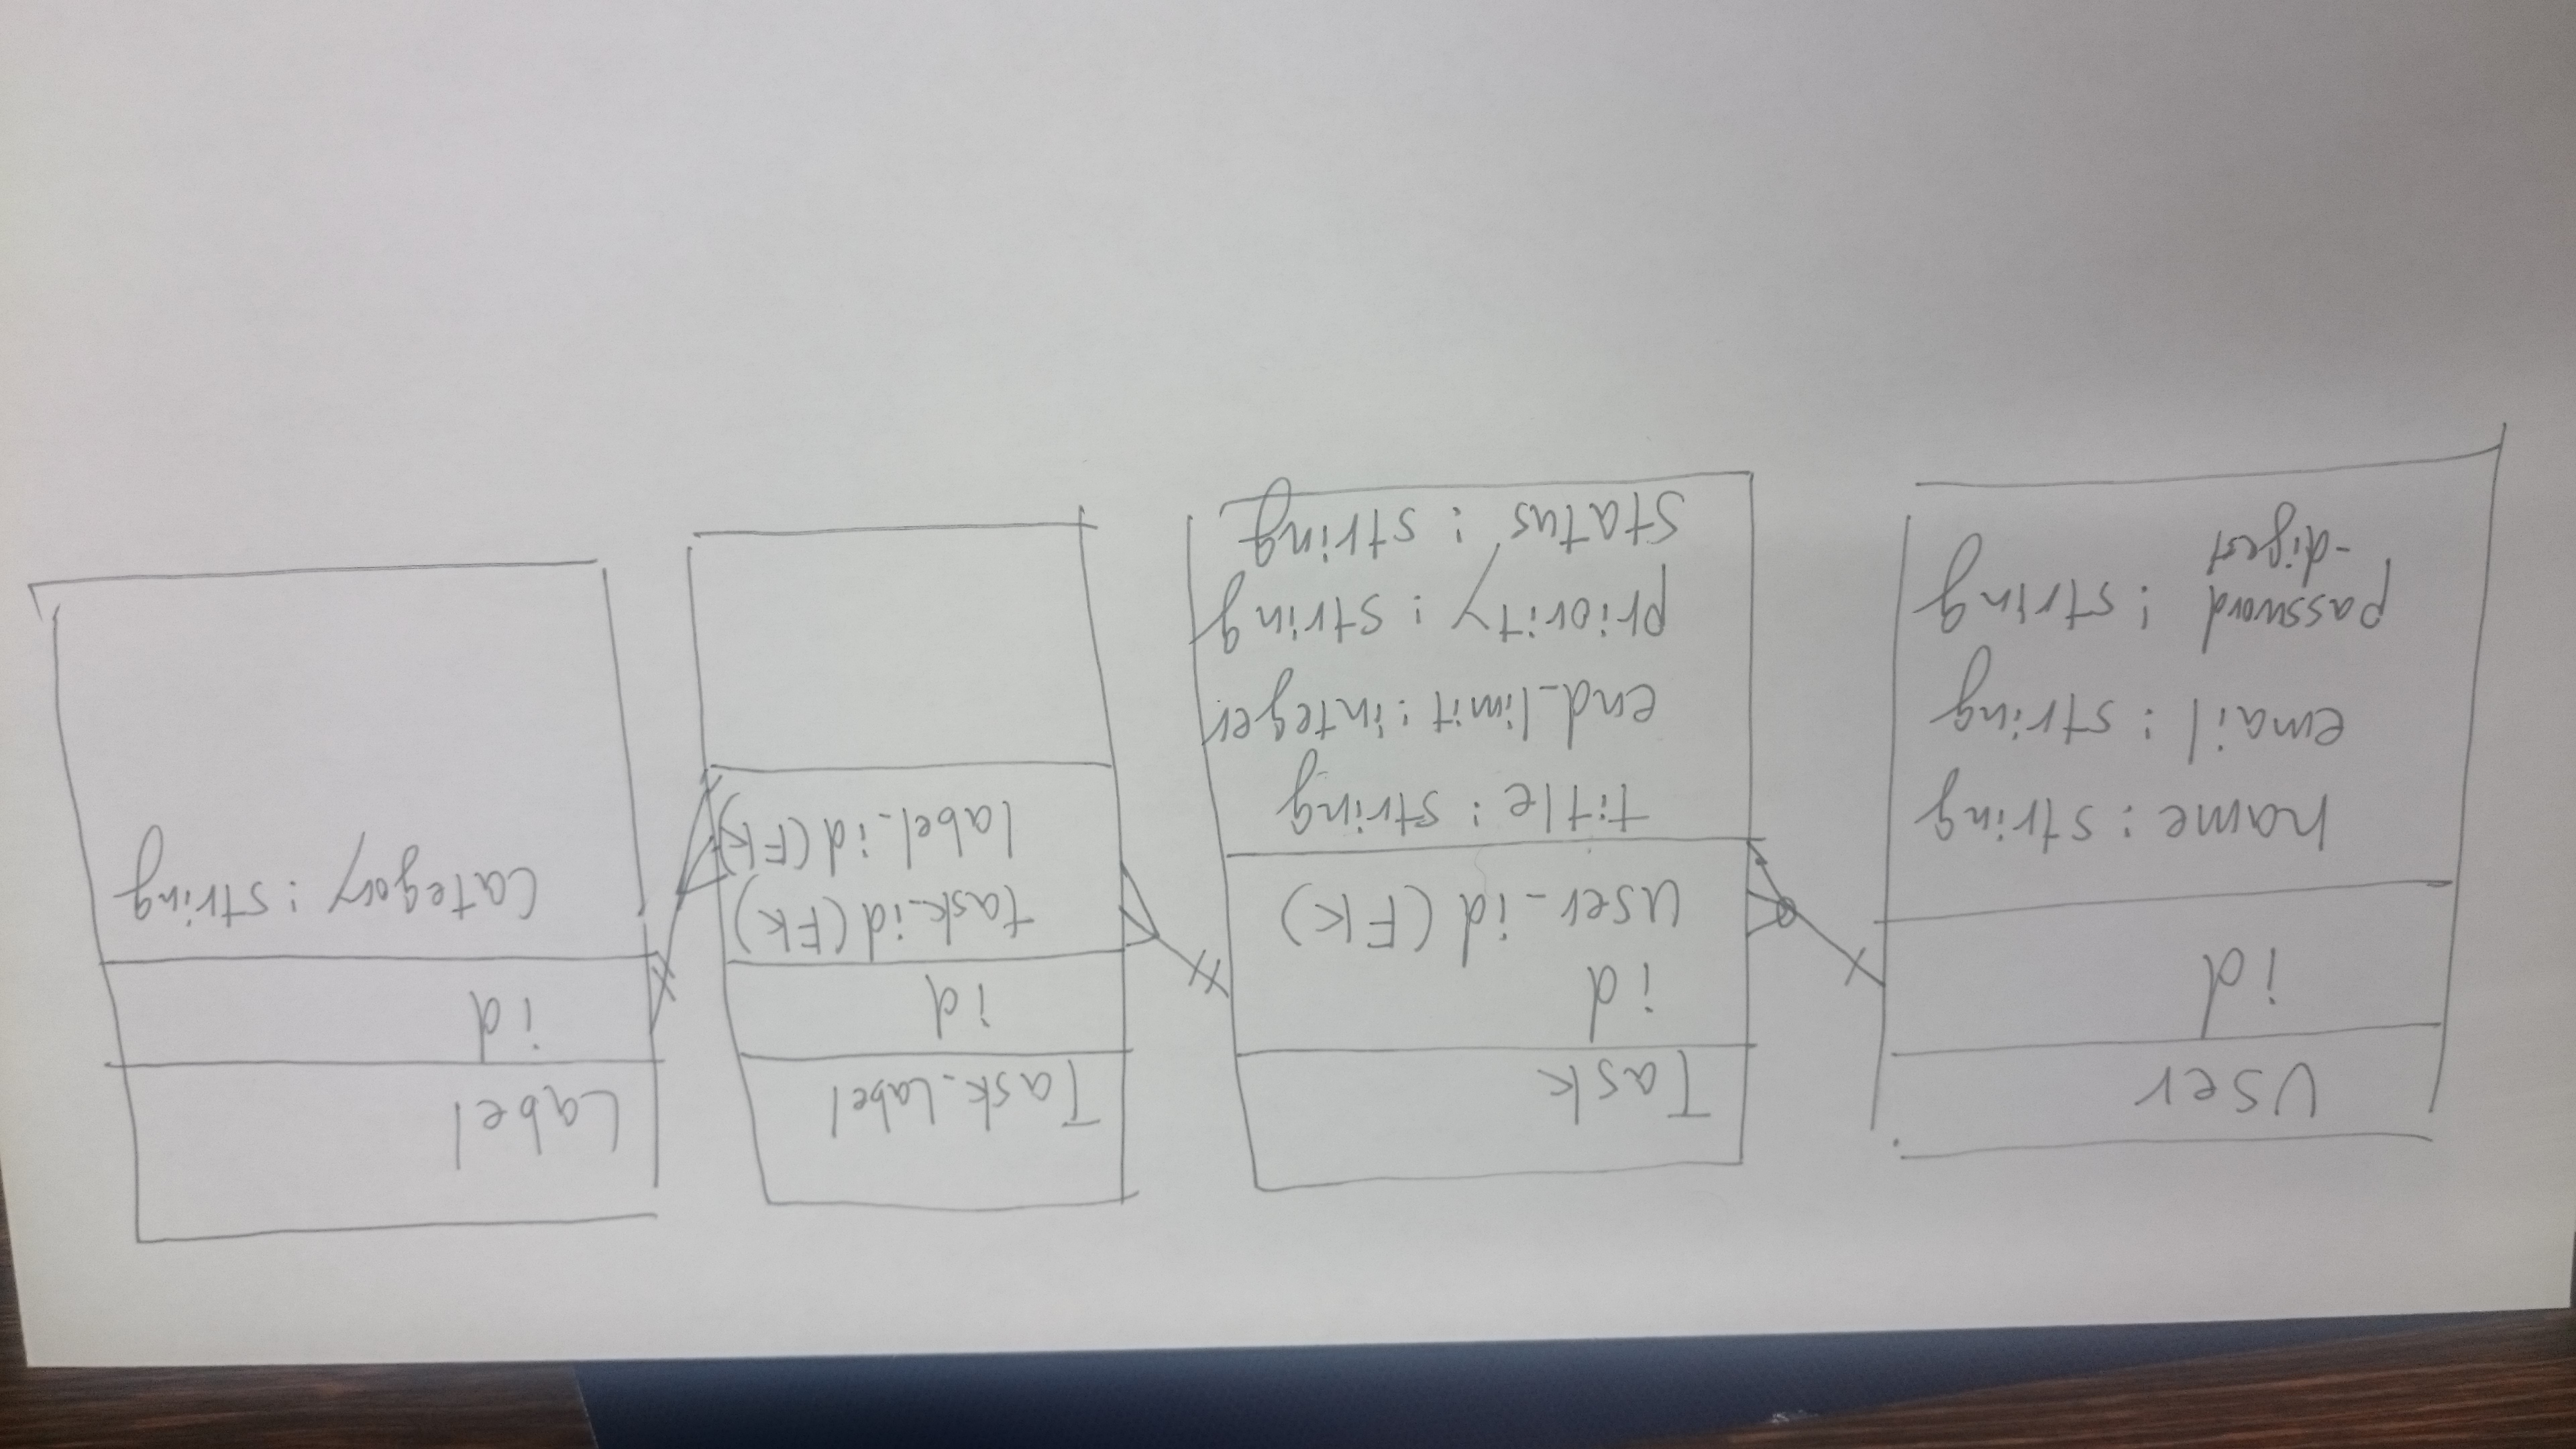 User
id
name : string
email : string
password : string
-digest
Task
id
user_id (FK)
title : string
end_limit : integer
priority : string
status : string
Task_Label
id
task_id (FK)
label_id (FK)
Label
id
Category : string